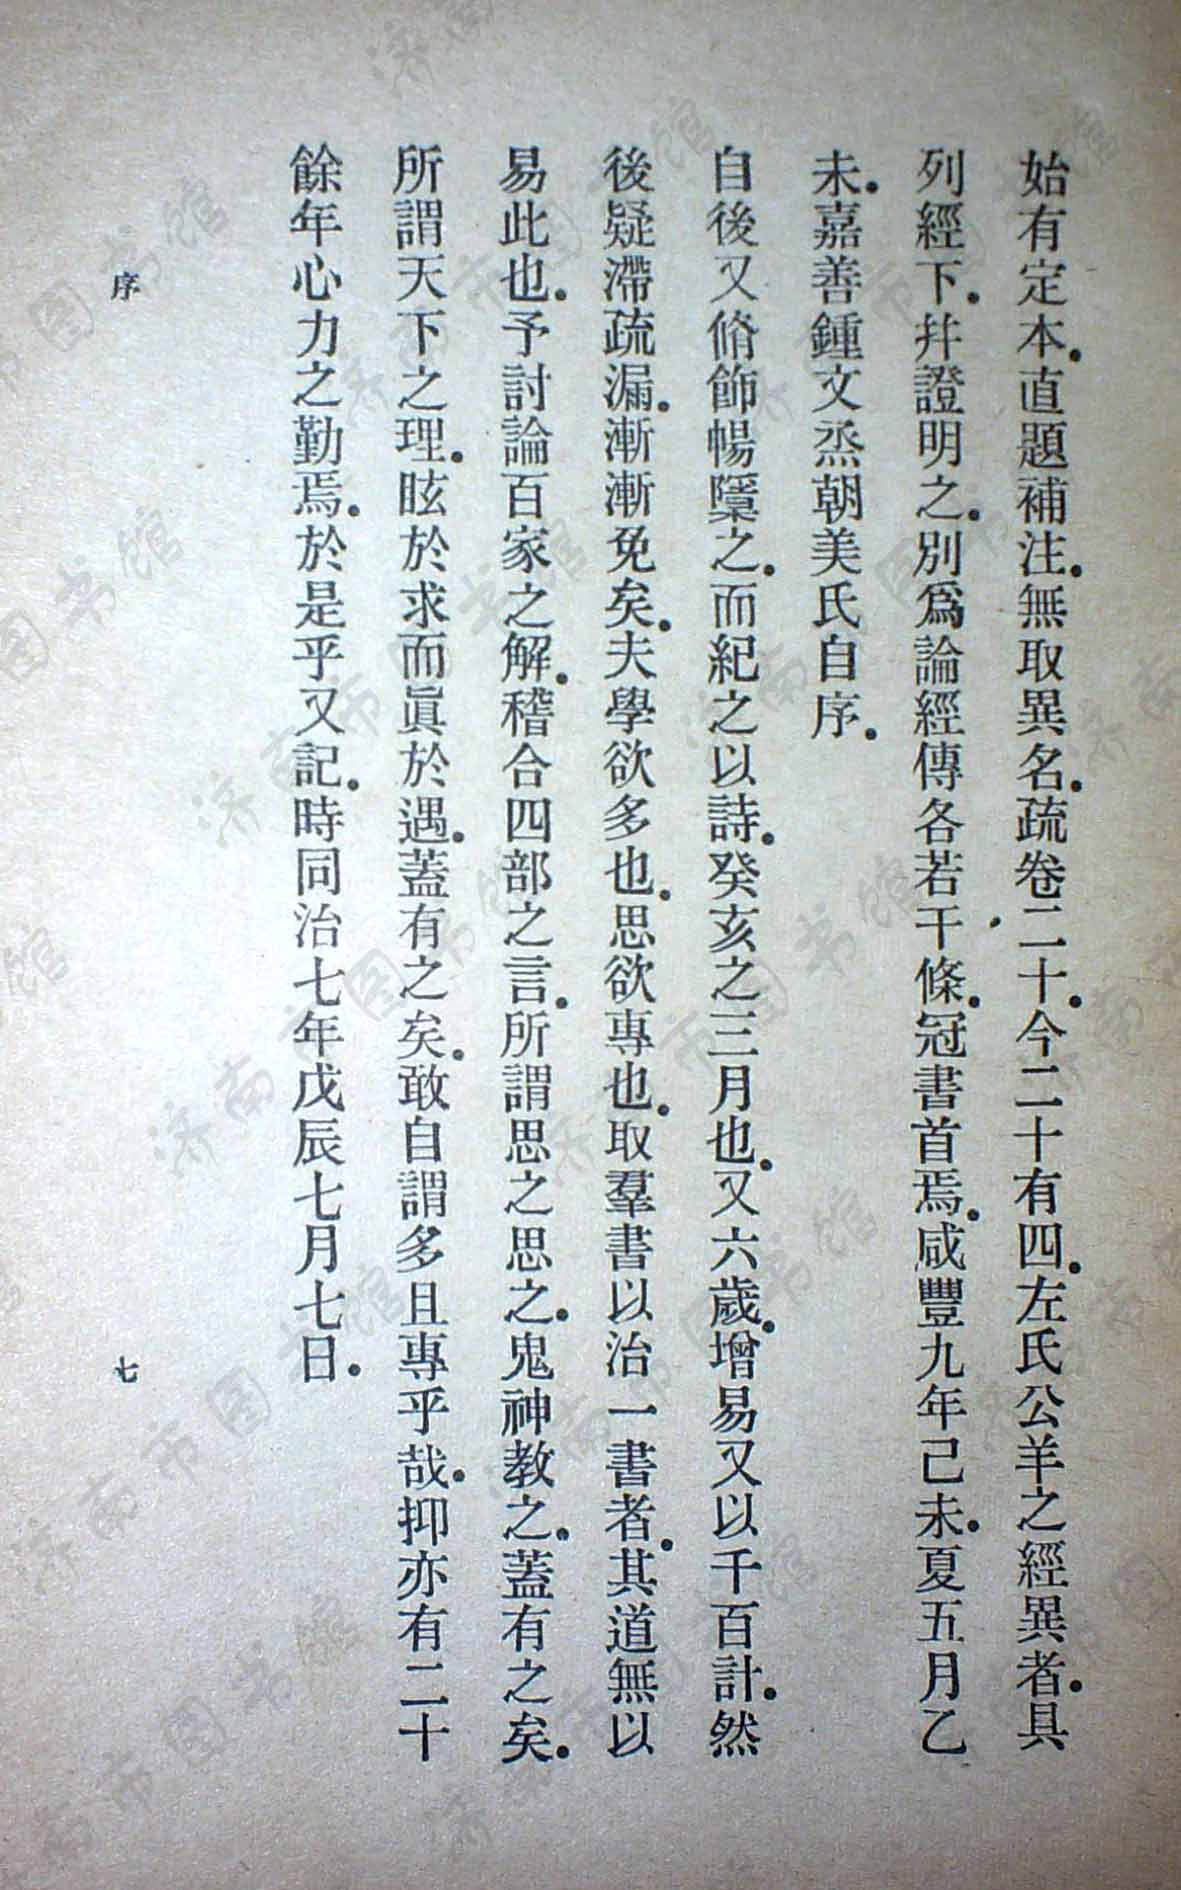 始有定本.直題補注.無取異名.疏卷二十.今二十有四.左氏公羊之經異者.具
列經下.幷證明之.別爲論經傳各若干條.冠書首焉.咸豐九年己未.夏五月乙
未.嘉善鍾文烝朝美氏自序.
自後又脩飾暢隱之.而紀之以詩.癸亥之三月也.又六歲.增易又以千百計.然
後疑滯疏漏.漸漸免矣.夫學欲多也.思欲專也.取羣書以治一書者.其道無以
易此也.予討論百家之解.稽合四部之言.所謂思之思之.鬼神教之.蓋有之矣.
所謂天下之理.眩於求而眞於遇.蓋有之矣.敢自謂多且專乎哉.抑亦有二十
餘年心力之勤焉.於是乎又記.時同治七年戊辰七月七日.
序
七
济南市图书馆